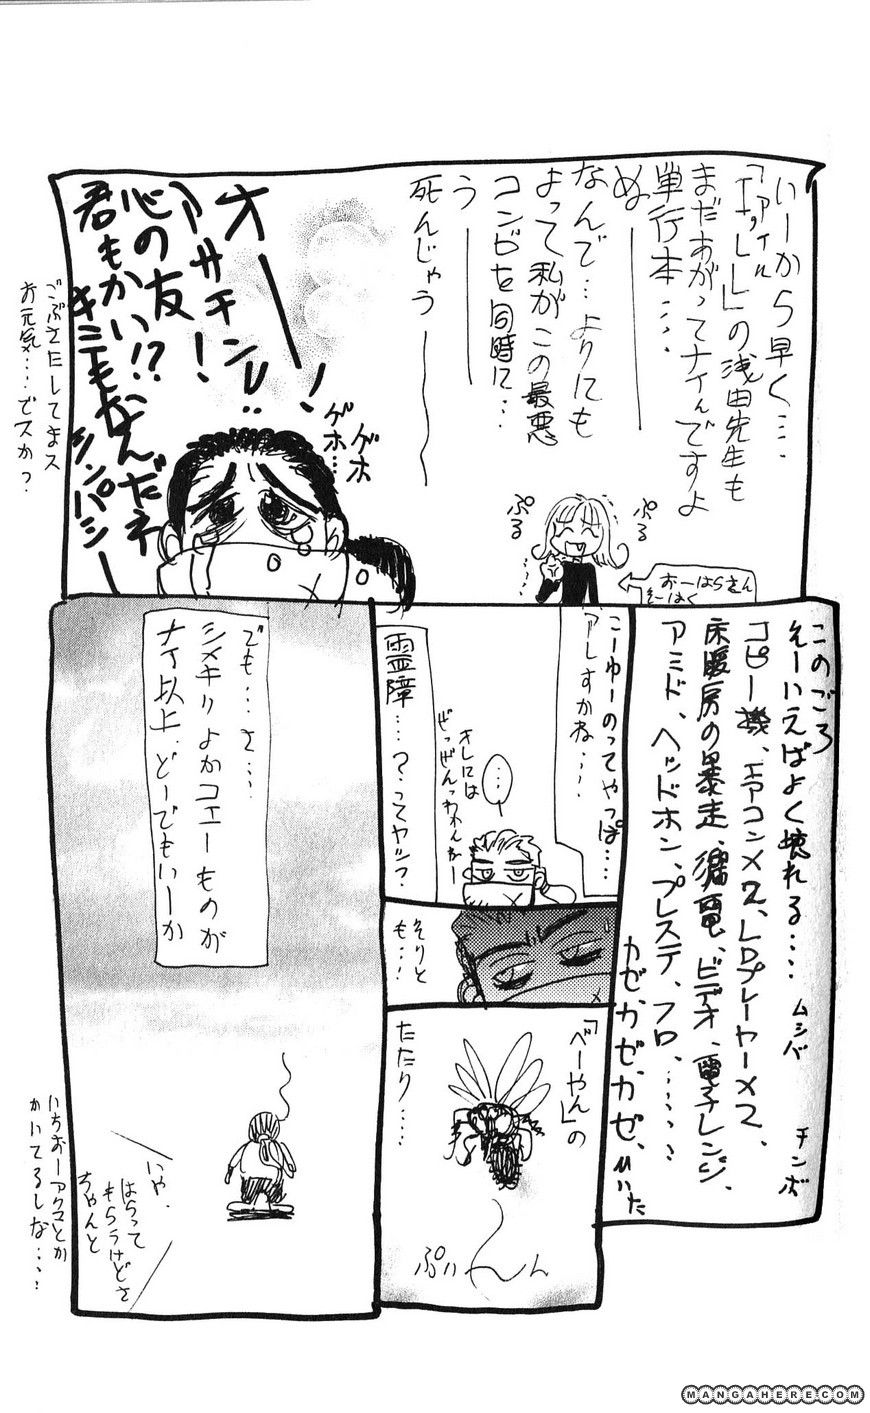 いーから早く‥‥
「ファイル
の浅田先生も
まだあがってナイんですよ
単行本‥‥
ぬ――
なんで‥よりにも
よって私がこの最悪
コンビを同時に‥
う――
死んじゃう――
ぷる
ぷる
おーはらさん
そーはく
オーーッ!
アサチン!!
心の友!
君もかい!?
キミもなんだネ
シンパシー
ゲホ
ゲホ‥
ごぶさたしてまス
お元気‥‥でスか?
このごろ
そーいえばよく壊れる‥‥
コピー機、エアコン×2、LDプレーヤー×2、
床暖房の暴走、漏電、ビデオ、電子レンジ、
アミド、ヘッドホン、プレステ、フロ、‥‥‥
カゼ、カゼ、カゼ、ひいた
ムシバ
チンボ
こーゆーのってやっぱ‥‥
アレすかね‥‥
霊障‥‥?ってヤツ?
‥‥
オレには
ぜってぇぜんっわかんねー
それと
も‥!
「べーやん」の
たたり‥‥
ぷぃ〜ん
でも‥‥さ‥‥
シメキリよかコエーものが
ナイ以上‥どーでもいーか
いや、
はらって
もらうけどさ
ちゃんと
いちおーアクマとか
かいてるしな‥‥
MANGAHERE.COM